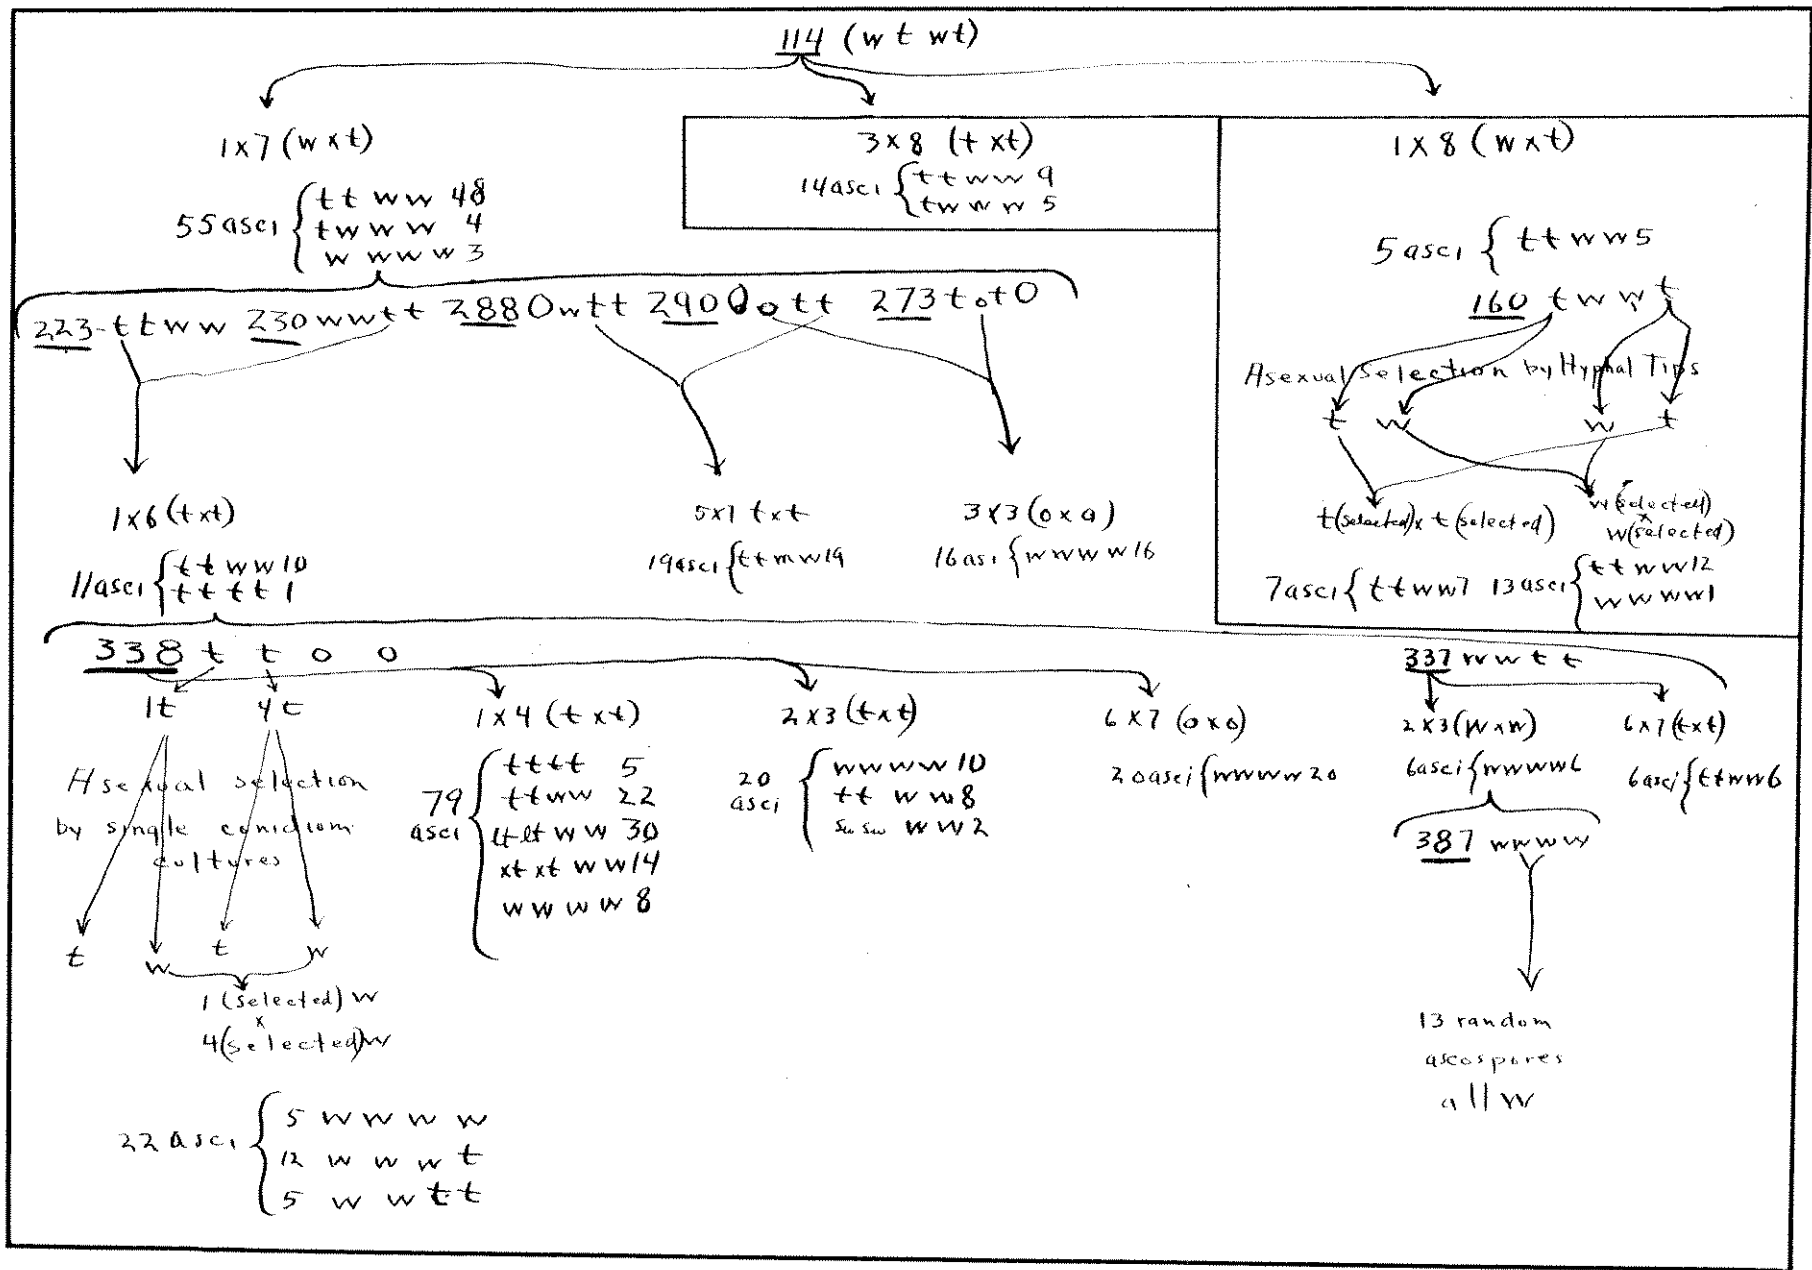 114 (w t wt)
1x7 (wxt)
55 asci
tt ww 48
tw w w 4
w ww w 3
3x8 (t xt)
14 asci
tt ww 9
tw w w 5
1x8 (wxt)
5 asci { tt ww 5
160 t w w t
Asexual selection by Hyphal Tips
t w w t
t(selected)x t(selected)
w(selected)
x
w(selected)
7 asci { ttww7
13 asci
tt ww12
w w w w1
223-ttww 230 wwtt 288 Owtt 290 OOtt 273 totO
1x6 (txt)
11 asci
tt ww10
tttt 1
5x1 txt
19 asci { ttmw19
3x3 (oxo)
16 asi { wwww16
338 t t o o
1t 4t
Asexual selection
by single conidiom
cultures
t w t w
1 (selected) w
x
4(selected)w
22 asci
5 w w w w
12 w w w t
5 w w t t
1x4 (txt)
79
asci
tttt 5
ttww 22
lt lt w w 30
xt xt w w14
w w w w 8
2x3 (txt)
20
asci
wwww 10
tt w w8
su su w w 2
6x7 (oxo)
20asci { wwww 20
337 w w t t
2x3(wxw)
6asci { wwww6
6x7(txt)
6asci { ttww6
387 wwww
13 random
ascospores
all w